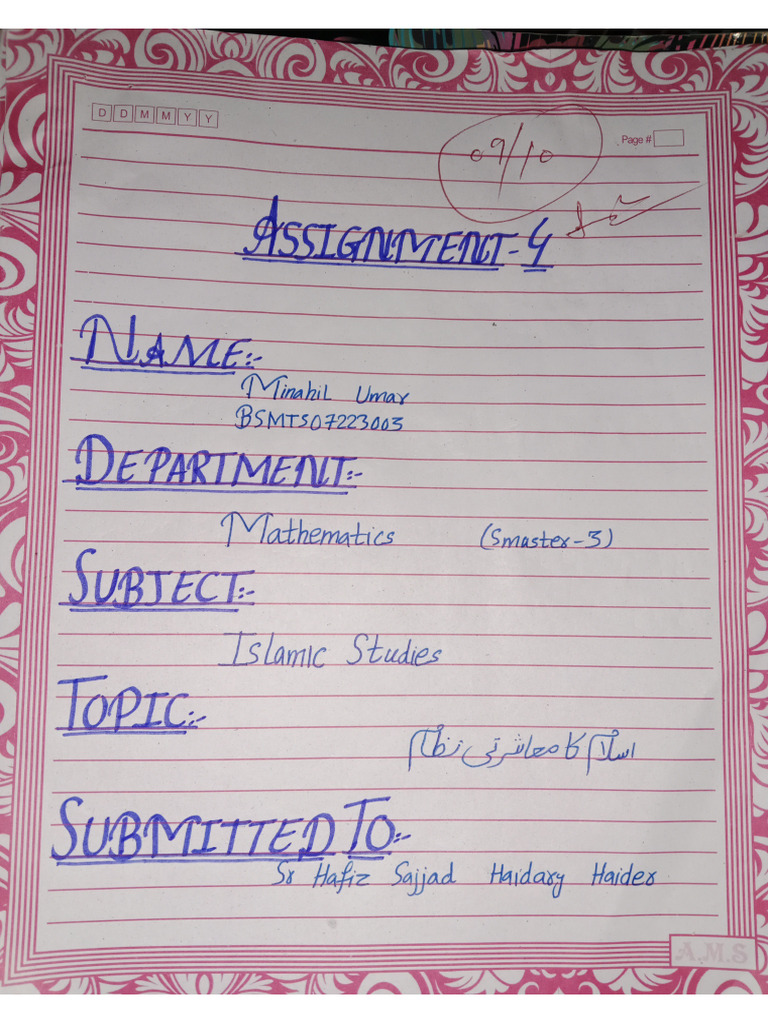 D D M M Y Y
Page #
09/10
ASSIGNMENT-4
NAME:-
Minahil Umar
BSMTS07223003
DEPARTMENT:-
Mathematics (Smaster-3)
SUBJECT:-
Islamic Studies
TOPIC:-
اسلام کا معاشرتی نظام
SUBMITTED TO:-
Sr Hafiz Sajjad Haidary Haider
A.M.S